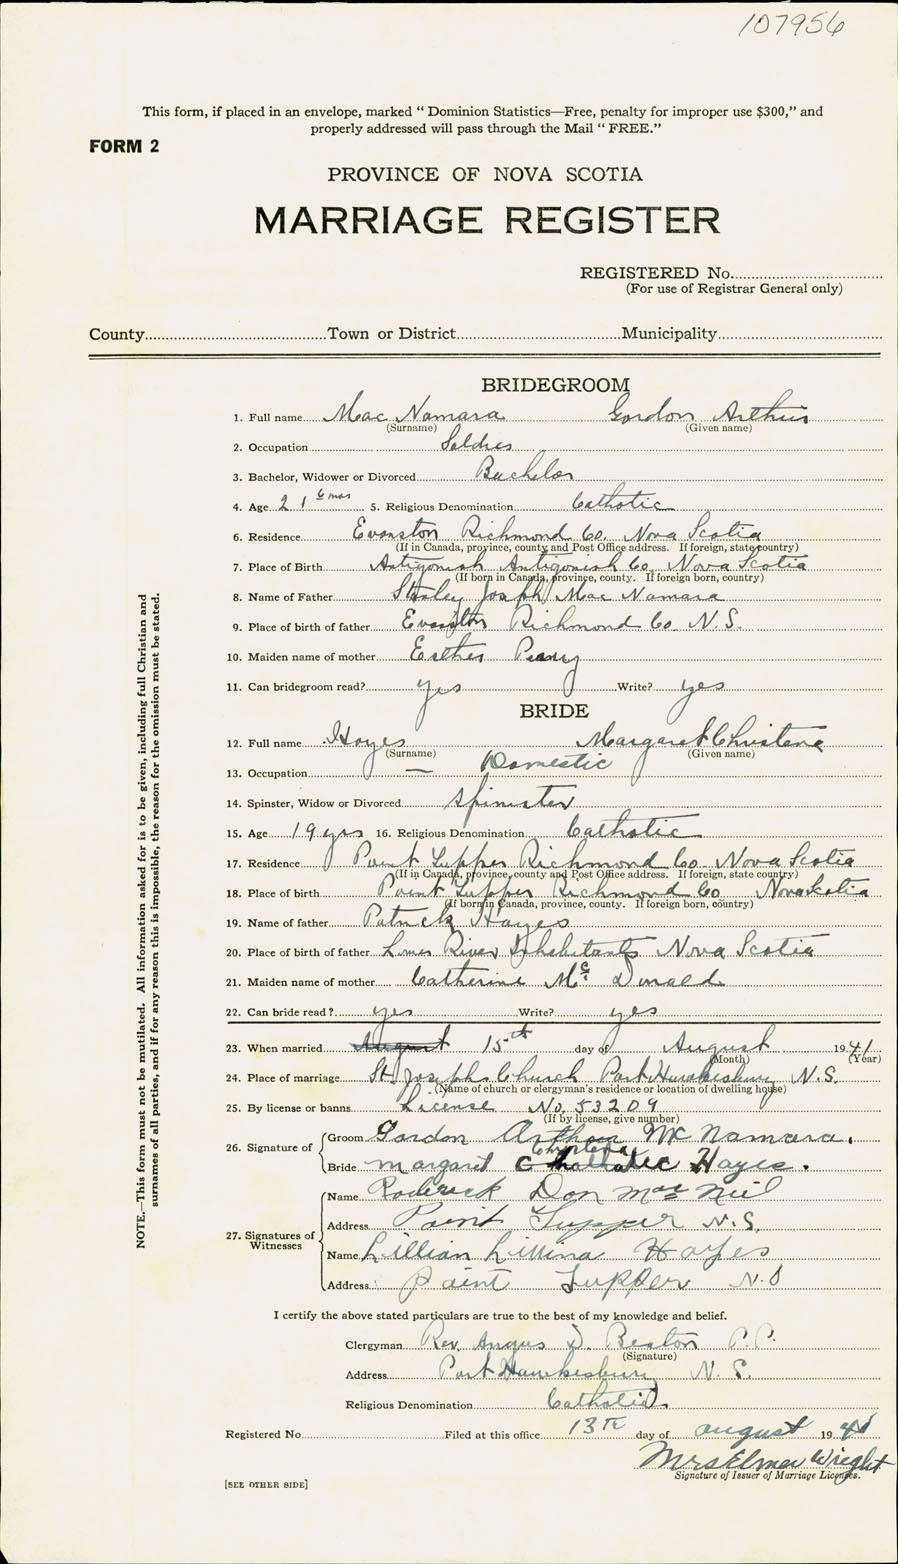 107956
This form, if placed in an envelope, marked " Dominion Statistics—Free, penalty for improper use $300," and
properly addressed will pass through the Mail " FREE."
FORM 2
PROVINCE OF NOVA SCOTIA
MARRIAGE REGISTER
REGISTERED No.
(For use of Registrar General only)
County Town or District Municipality
BRIDEGROOM
1. Full name Mac Namara Gordon Arthur
(Surname) (Given name)
2. Occupation Soldier
3. Bachelor, Widower or Divorced Bachelor
4. Age 21 6 mos 5. Religious Denomination Catholic
6. Residence Evanston Richmond Co. Nova Scotia
(If in Canada, province, county and Post Office address. If foreign, state country)
7. Place of Birth Antigonish Antigonish Co. Nova Scotia
(If born in Canada, province, county. If foreign born, country)
8. Name of Father Stanley Joseph Mac Namara
9. Place of birth of father Evanston Richmond Co. N.S.
10. Maiden name of mother Esther
11. Can bridegroom read? yes Write? yes
BRIDE
12. Full name Hayes Margaret Christena
(Surname) (Given name)
13. Occupation — Domestic
14. Spinster, Widow or Divorced Spinster
15. Age 19 yrs 16. Religious Denomination Catholic
17. Residence Point Tupper Richmond Co. Nova Scotia
(If in Canada, province, county and Post Office address. If foreign, state country)
18. Place of birth Point Tupper Richmond Co Nova Scotia
(If born in Canada, province, county. If foreign born, country)
19. Name of father Patrick Hayes
20. Place of birth of father Lower River Inhabitants Nova Scotia
21. Maiden name of mother Catherine Mc Donald
22. Can bride read? yes Write? yes
23. When married August 15th day of August 1941
(Month) (Year)
24. Place of marriage St Josephs Church Port Hawkesbury N.S.
(Name of church or clergyman's residence or location of dwelling house)
25. By license or banns License No. 53209
(If by license, give number)
26. Signature of Groom Gordon Arthur McNamara.
Christena
Bride Margaret Hayes.
27. Signatures of Witnesses
Name Roderick Don MacNeil
Address Point Tupper N.S.
Name Lillian Hayes
Address Point Tupper N.S
I certify the above stated particulars are true to the best of my knowledge and belief.
Clergyman Rev. Angus D. Beaton P.P.
(Signature)
Address Port Hawkesbury N.S.
Religious Denomination Catholic
Registered No. Filed at this office 13th day of August 19
Mrs Elmer Wright
Signature of Issuer of Marriage Licenses.
[SEE OTHER SIDE]
NOTE.—This form must not be mutilated. All information asked for is to be given, including full Christian and
surnames of all parties, and if for any reason this is impossible, the reason for the omission must be stated.